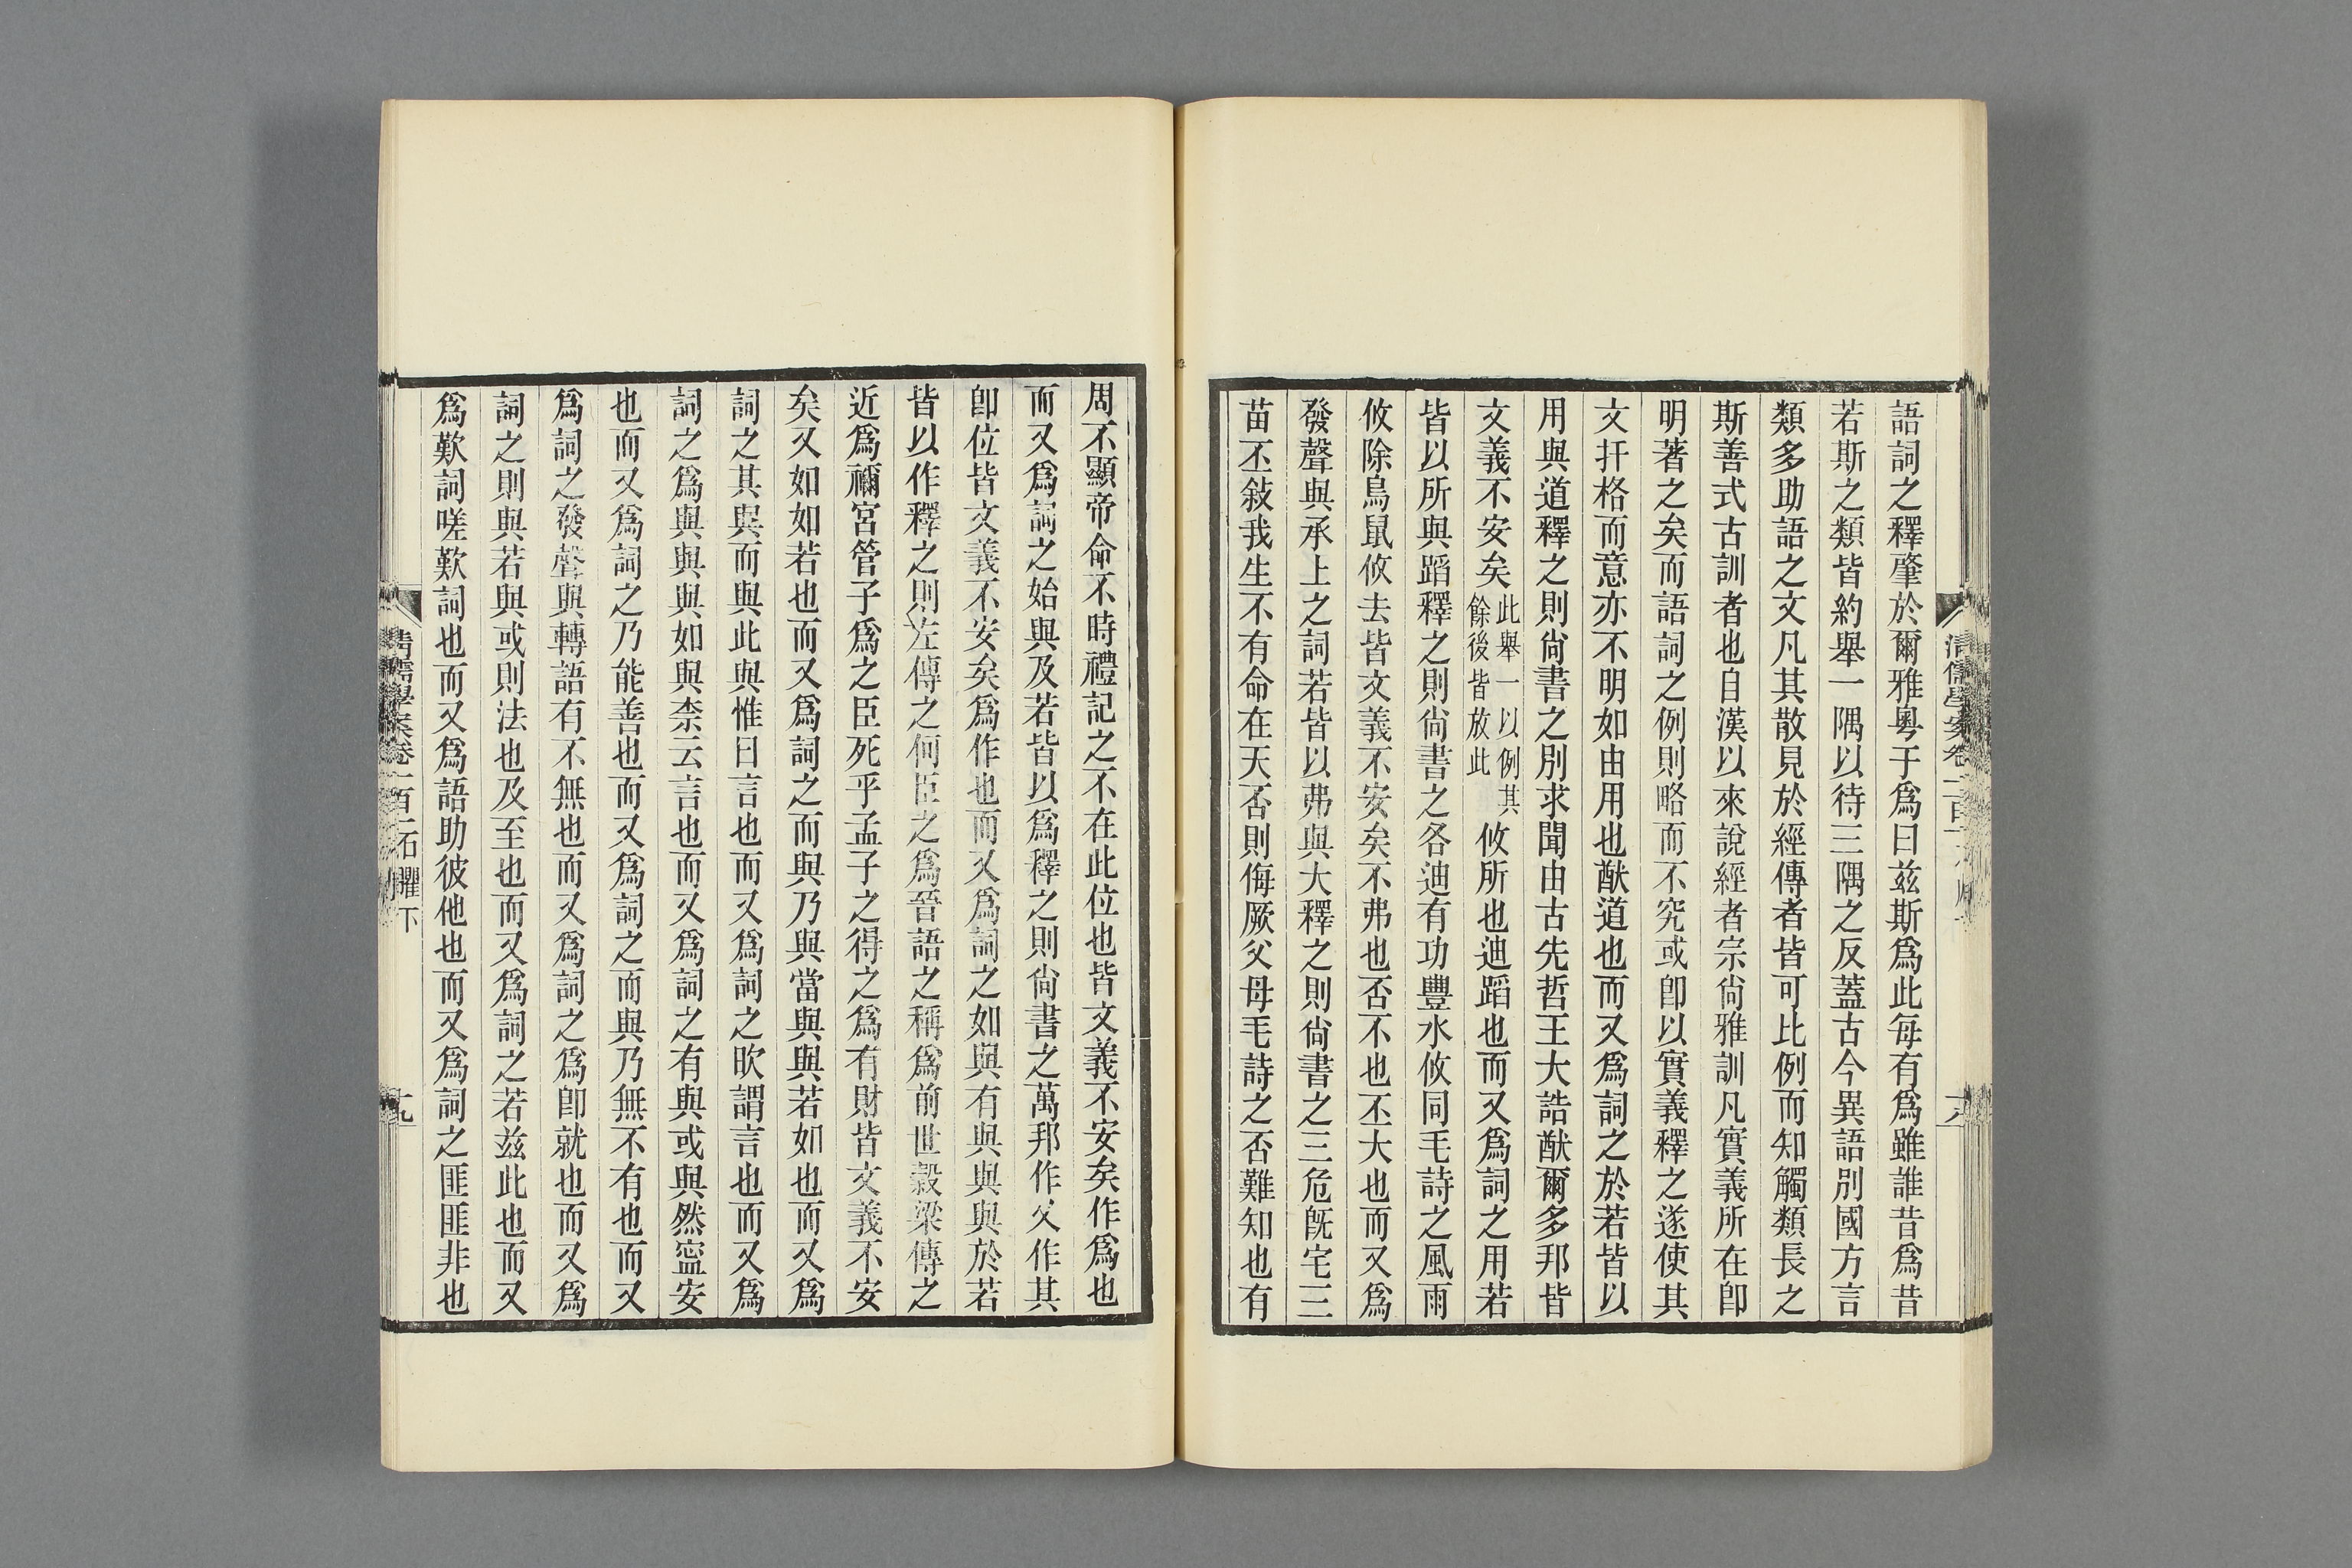 語詞之釋肇於爾雅粤于爲曰茲斯爲此每有爲雖誰昔爲昔
若斯之類皆約舉一隅以待三隅之反蓋古今異語別國方言
類多助語之文凡其散見於經傳者皆可比例而知觸類長之
斯善式古訓者也自漢以來說經者宗尙雅訓凡實義所在卽
明著之矣而語詞之例則略而不究或卽以實義釋之遂使其
文扞格而意亦不明如由用也猷道也而又爲詞之於若皆以
用與道釋之則尙書之別求聞由古先哲王大誥猷爾多邦皆
文義不安矣此舉一以例其餘後皆放此攸所也迪蹈也而又爲詞之用若
皆以所與蹈釋之則尙書之各迪有功豐水攸同毛詩之風雨
攸除鳥鼠攸去皆文義不安矣不弗也否不也丕大也而又爲
發聲與承上之詞若皆以弗與大釋之則尙書之三危旣宅三
苗丕敍我生不有命在天否則侮厥父母毛詩之否難知也有
周不顯帝命不時禮記之不在此位也皆文義不安矣作爲也
而又爲詞之始與及若皆以爲釋之則尙書之萬邦作乂作其
卽位皆文義不安矣爲作也而又爲詞之如與有與與與於若
皆以作釋之則左傳之何臣之爲晉語之稱爲前世穀梁傳之
近爲禰宮管子爲之臣死乎孟子之得之爲有財皆文義不安
矣又如如若也而又爲詞之而與乃與當與與若如也而又爲
詞之其與而與此與惟曰言也而又爲詞之欥謂言也而又爲
詞之爲與與與如與柰云言也而又爲詞之有與或與然寍安
也而又爲詞之乃能善也而又爲詞之而與乃無不有也而又
爲詞之發聲與轉語有不無也而又爲詞之爲卽就也而又爲
詞之則與若與或則法也及至也而又爲詞之若茲此也而又
爲歎詞嗟歎詞也而又爲語助彼他也而又爲詞之匪匪非也
清儒學案卷一百一 石臞下
十九